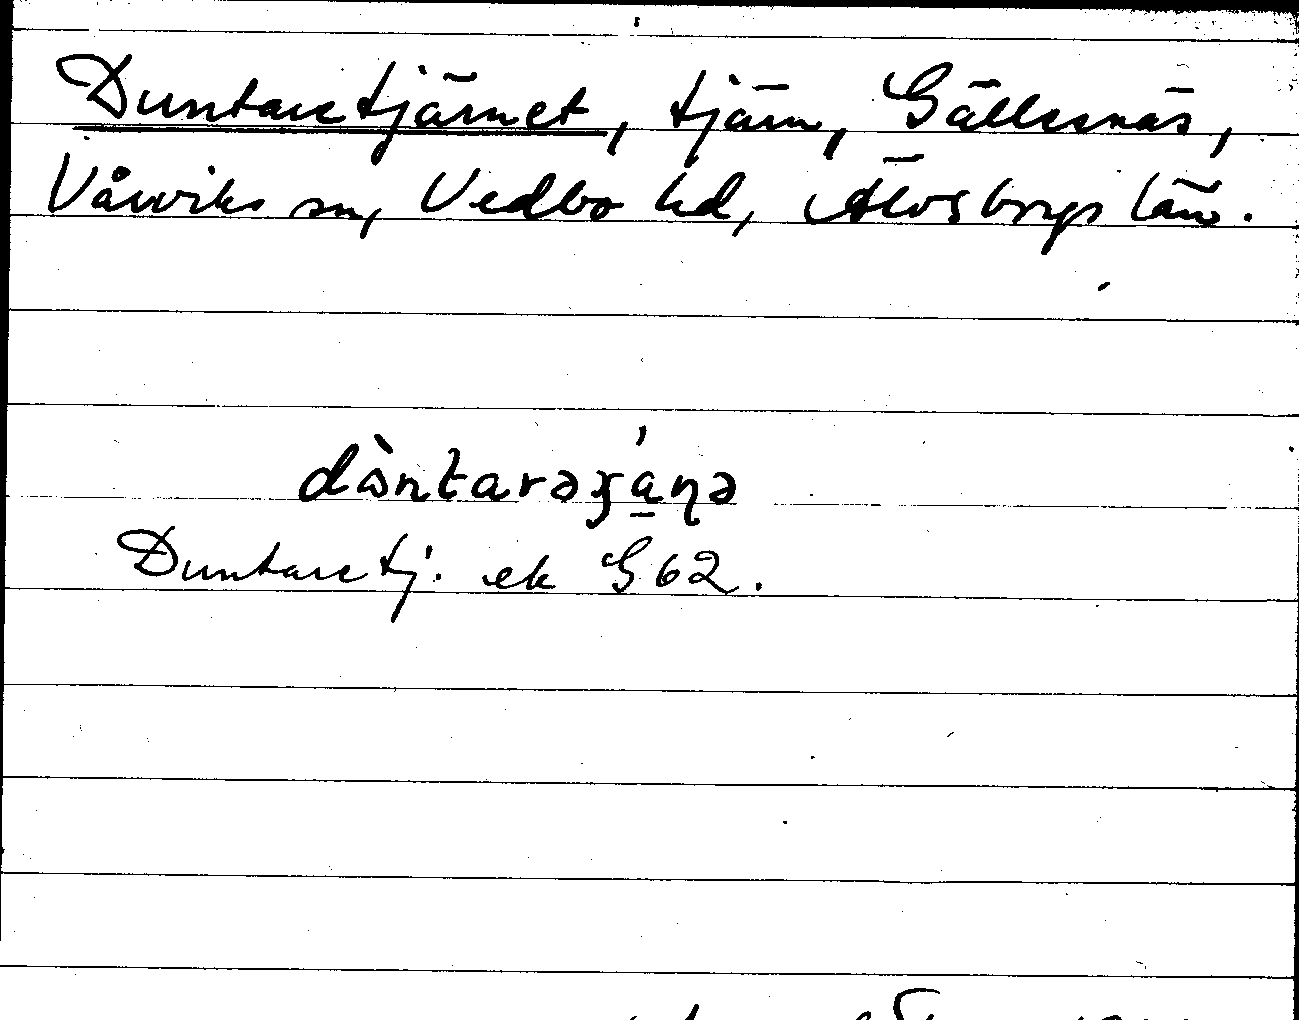 Duntaretjärnet, tjärn, Gällesnäs,
Vårviks sn, Vedbo hd, Älvsborgs län.
dòntarəɟánə
Duntaretj. ek G62.